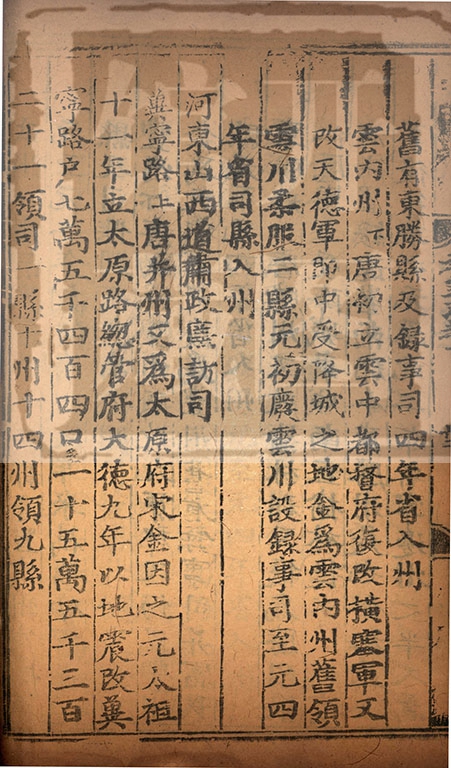 舊有東勝縣及録事司四年省入州
雲内州下唐初立雲中都督府復改橫塞軍又
改天德軍即中受降城之地金爲雲内州舊領
雲川柔服二縣元初廢雲川設録事司至元四
年省司縣入州
河東山西道肅政廉訪司
兾寧路上唐并州又爲太原府宋金因之元太祖
十一年立太原路總管府大德九年以地震改兾
寧路户七萬五千四百四口一十五萬五千三百
二十一領司一縣十州十四州領九縣